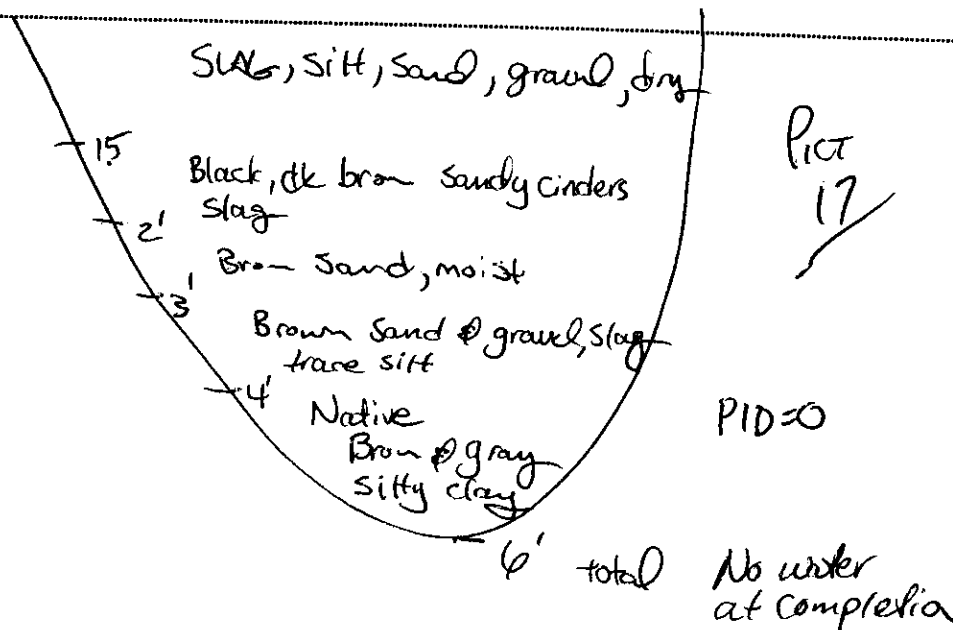 SLAG, Silt, Sand, gravel, dry
15
Pict
17
Black, dk brown Sandy cinders
slag
2'
Brown Sand, moist
3'
Brown Sand & gravel, slag
trace silt
4'
Native
PID=0
Brown & gray
silty clay
6' total
No water
at completion